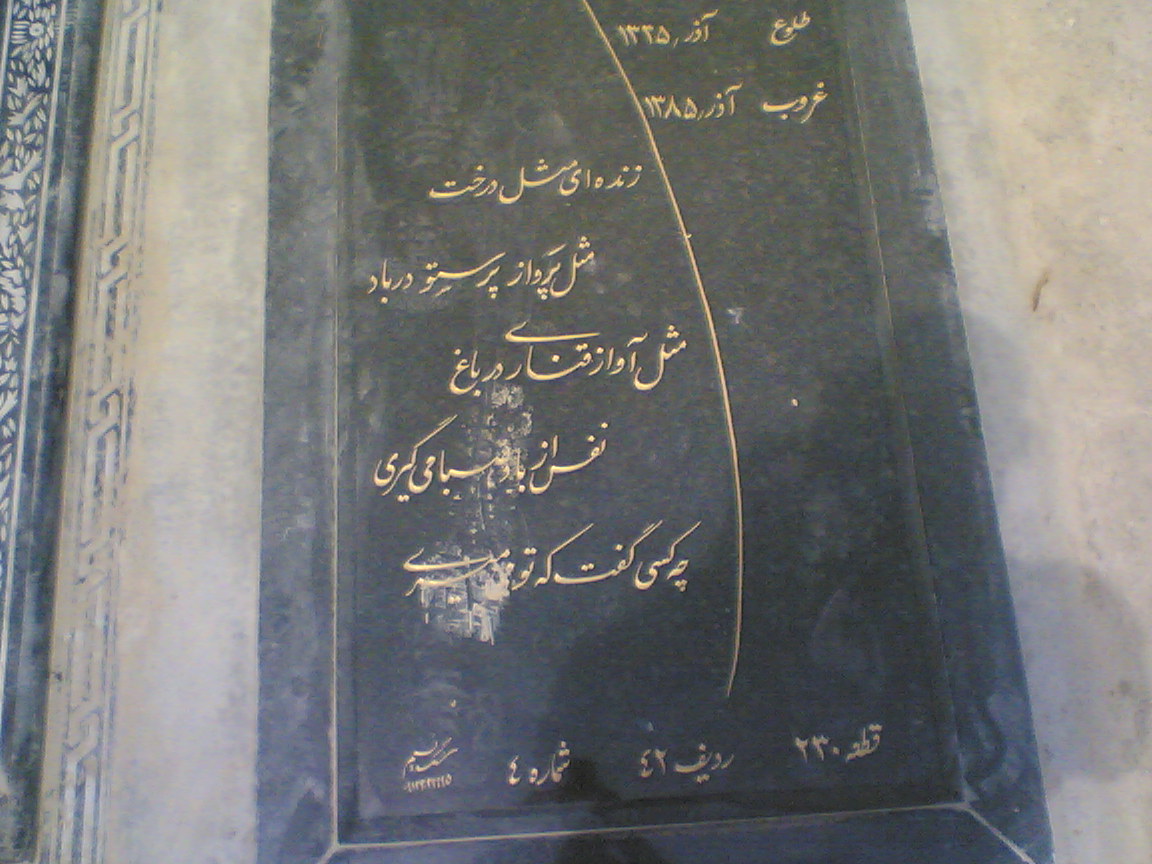 طلوع آذر ۱۳۲۵
غروب آذر ۱۳۸۵
زنده ای مثل درخت
مثل پَرواز پرستو در باد
مثل آواز قناری در باغ
نفس از باد صبا می گیری
چه کسی گفت که تو میمیری
قطعه ۲۳۰ ردیف ۴۲ شماره ٤